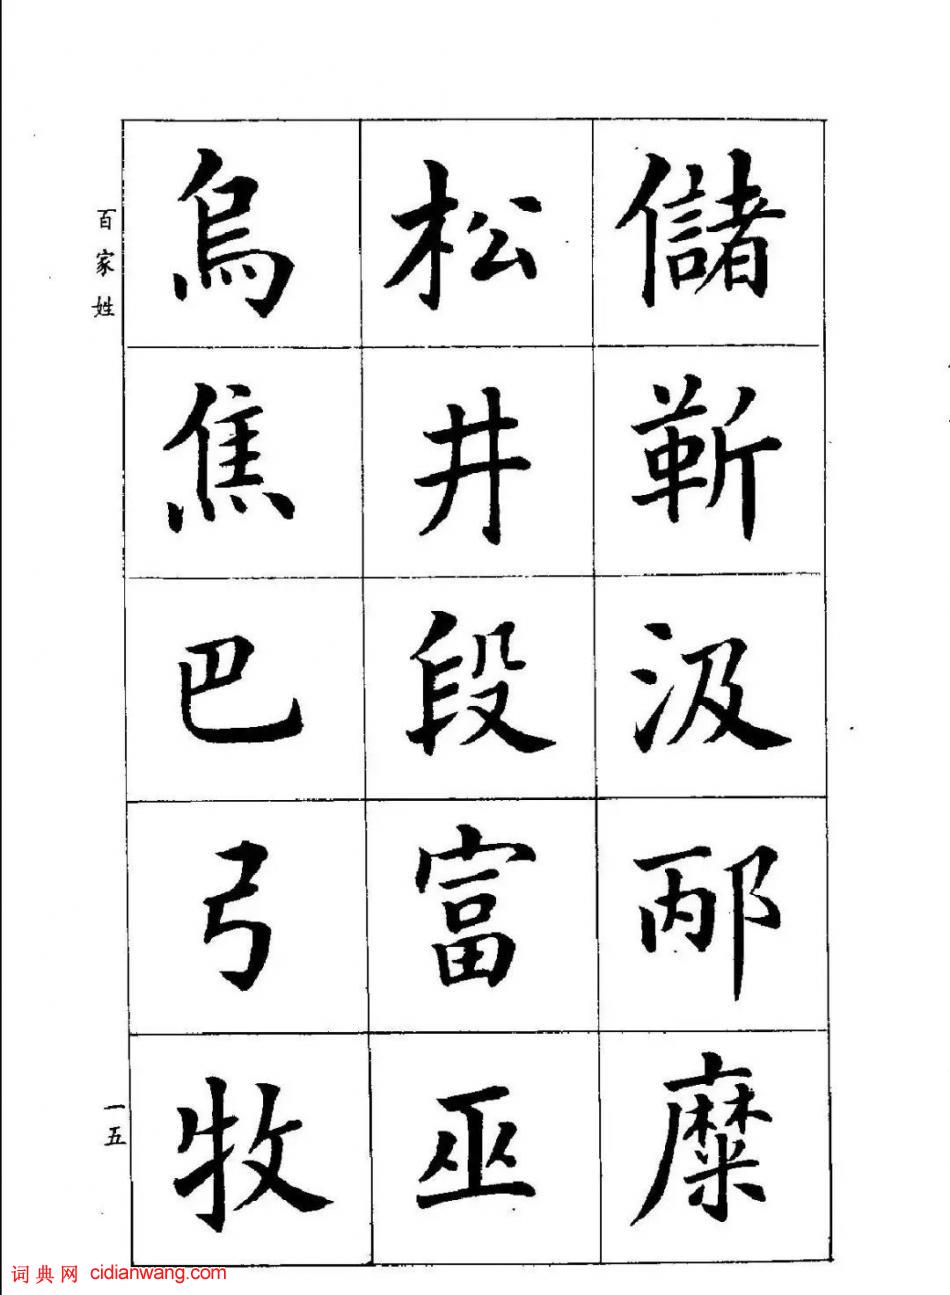 儲靳汲邴糜
松井段富巫
烏焦巴弓牧
百家姓
一五
词典网 cidianwang.com